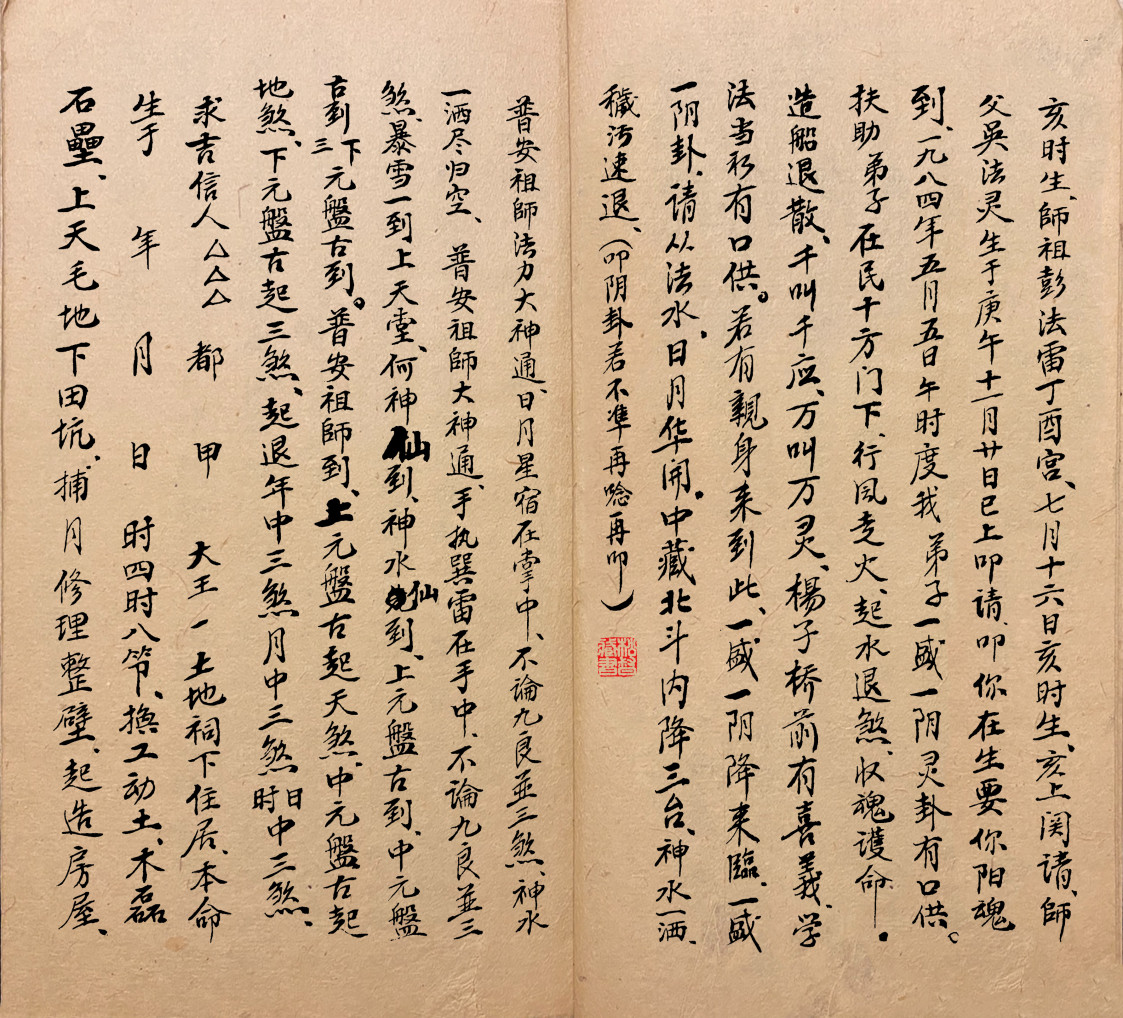 亥时生、師祖彭法雷丁酉宫、七月十六日亥时生、亥上関请、師
父吳法灵生于庚午十一月廿日巳上叩请、叩你在生要你阳魂
到、一九八四年五月五日午时度我弟子一盛一阴灵卦有口供。
扶助弟子在民千方门下、行風走火、起水退煞、收魂護命。
造船退散、千叫千应、万叫万灵、楊子桥前有喜義、学
法当初有口供。若有親身来到此、一盛一阴降来臨、一盛
一阴卦、请从法水、日月华開。中藏北斗内降三台、神水一洒、
穢污速退、（叩阴卦若不準再唸再叩）
普安祖師法力大神通、日月星宿在掌中、不論九良並三煞、神水
一洒尽归空、普安祖師大神通、手执巽雷在手中、不論九良並三
煞、暴雪一到上天堂、何神仙到、神水仙到、上元盤古到、中元盤
古到三下元盤古到。普安祖師到、上元盤古起天煞、中元盤古起
地煞、下元盤古起三煞、起退年中三煞月中三煞日时中三煞、
求吉信人△△△都甲大王一土地祠下住居、本命
生于 年 月 日 时四时八節、撫工动土、木磊
石壘、上天毛地下田坑、捕月修理整壁、起造房屋、